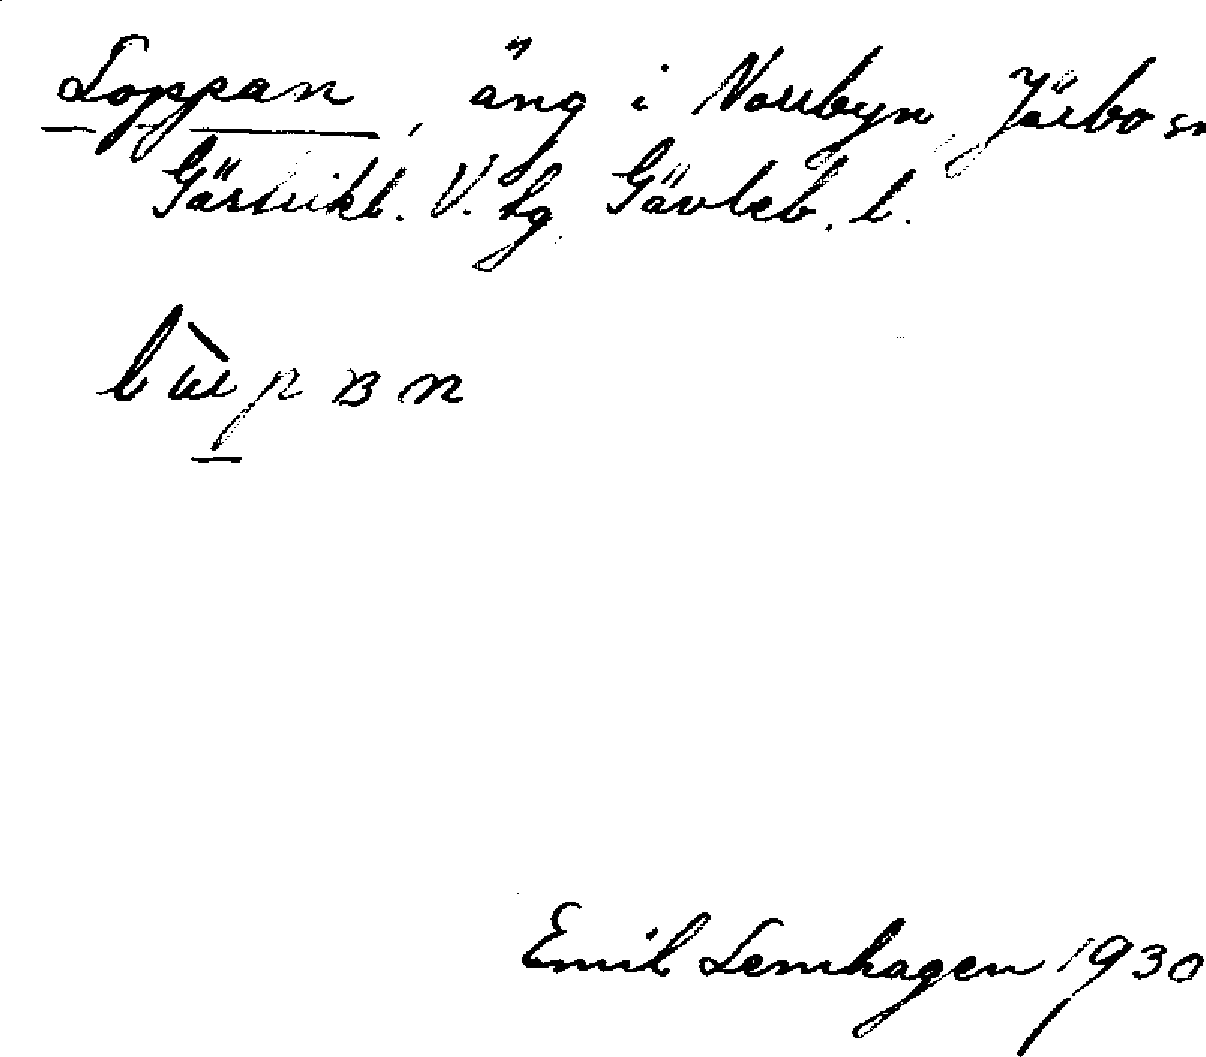 Loppan, äng i Norrbyn, Järbo sn
Gästrikl. V. tg. Gävleb. l.
Emil Lemhagen 1930